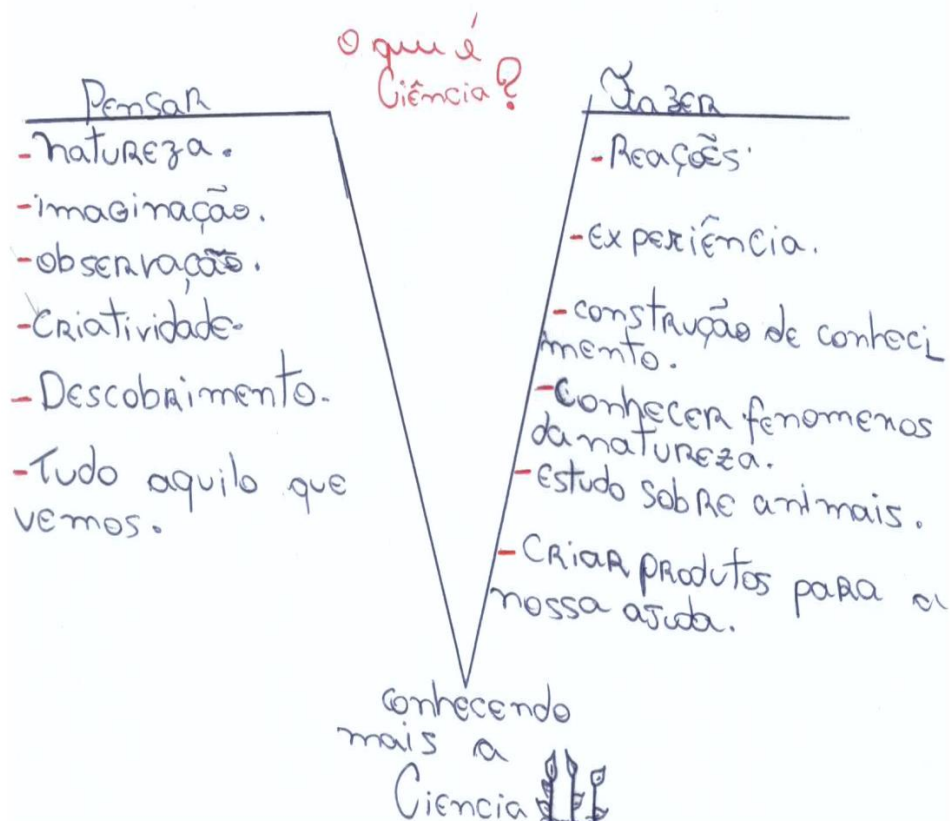 O que é
Ciência?
Pensar
-natureza.
-imaginação.
-observação.
-Criatividade-
-Descobrimento.
-Tudo aquilo que
vemos.
Fazer
-Reações.
-Experiência.
-construção de conheci
mento.
-Conhecer fenomenos
da natureza.
-Estudo sobre animais.
-Criar produtos para a
nossa ajuda.
conhecendo
mais a
Ciencia